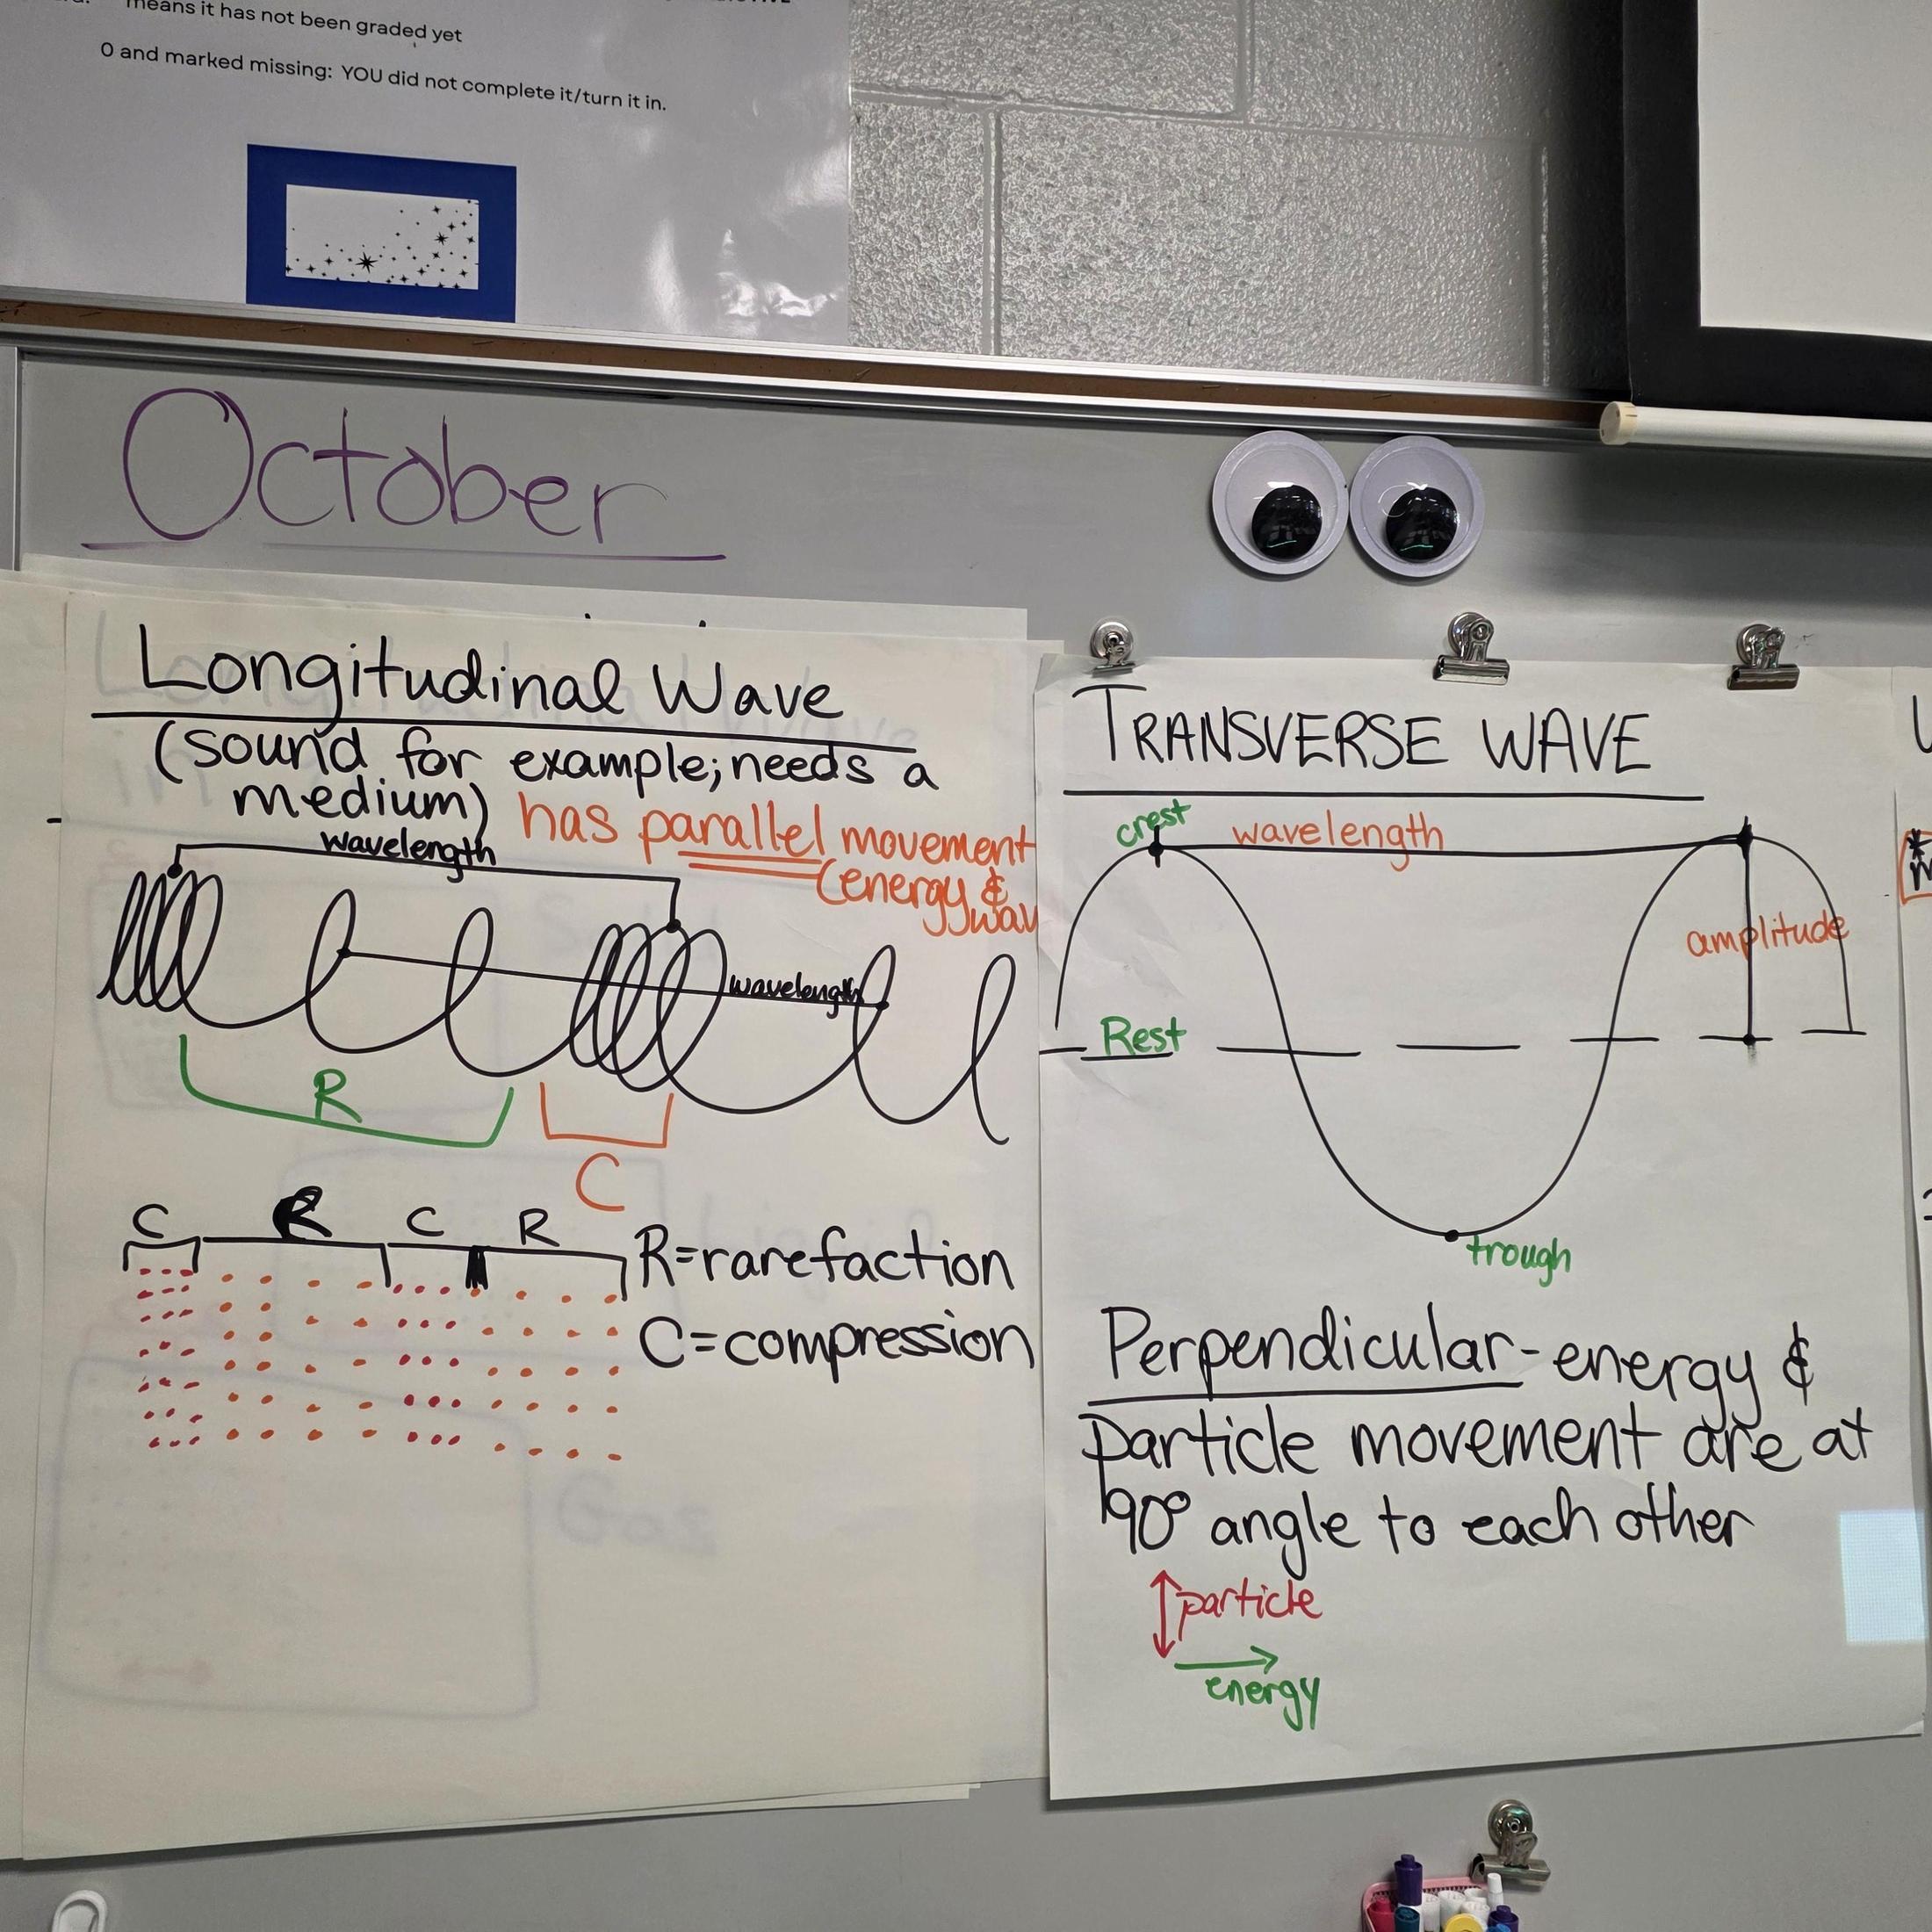 means it has not been graded yet
0 and marked missing: YOU did not complete it/turn it in.
October
Longitudinal Wave
(sound for example; needs a
medium) has parallel movement
(energy &
wavelength
wavelength
R
C
C R C R
R=rarefaction
C=compression
TRANSVERSE WAVE
crest
wavelength
amplitude
Rest
trough
Perpendicular-energy &
particle movement are at
90° angle to each other
particle
energy
Gas